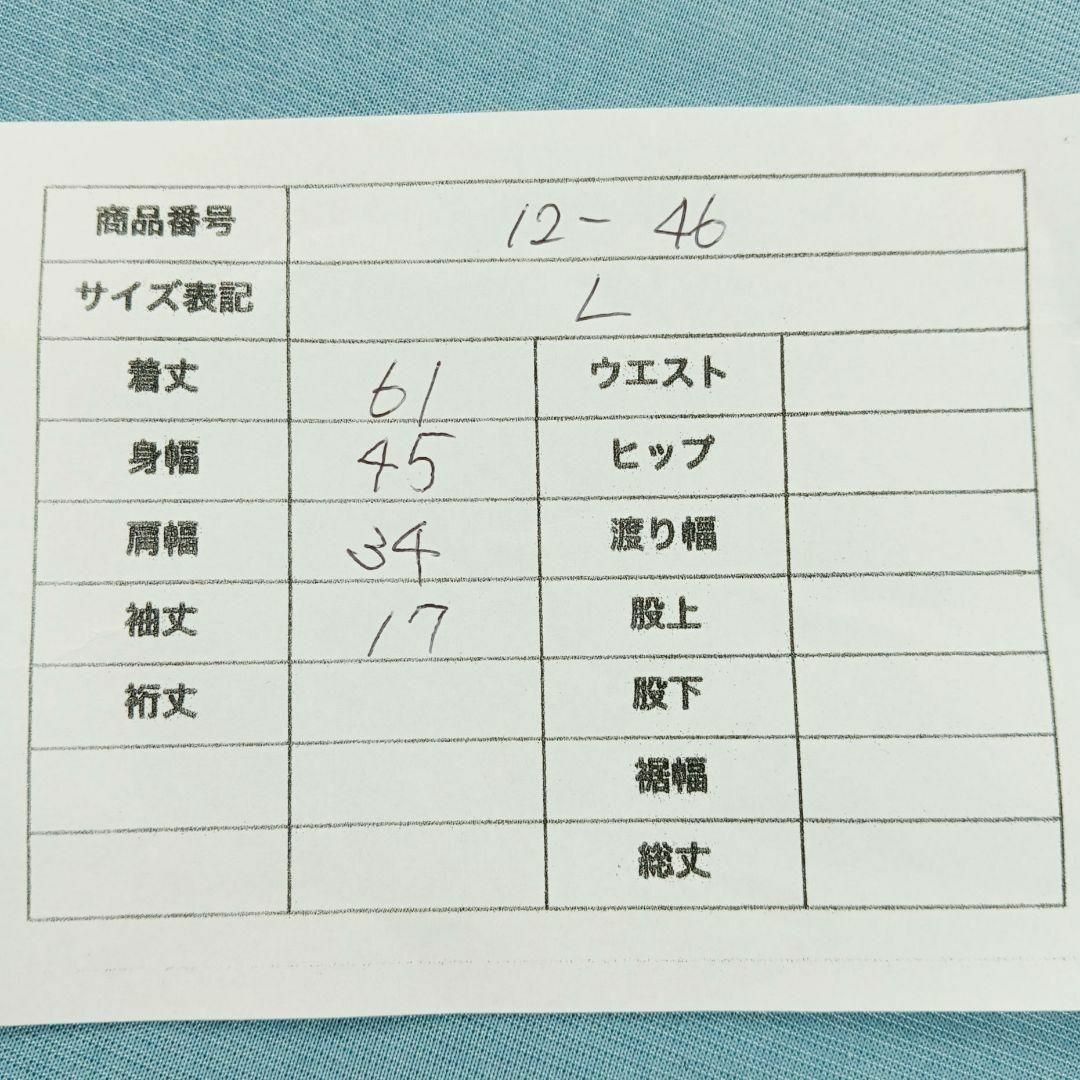 商品番号 12-46
サイズ表記 L
着丈 61 ウエスト
身幅 45 ヒップ
肩幅 34 渡り幅
袖丈 17 股上
裄丈 股下
裾幅
総丈